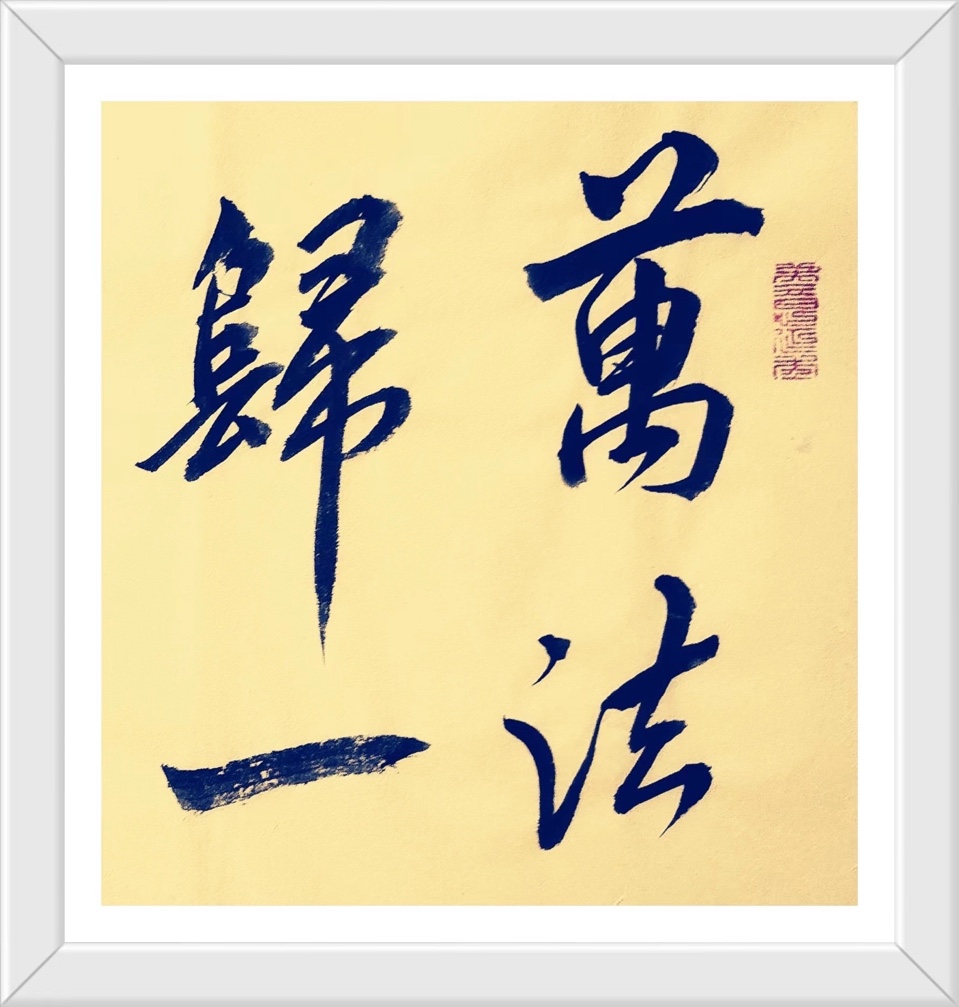 萬法
歸一